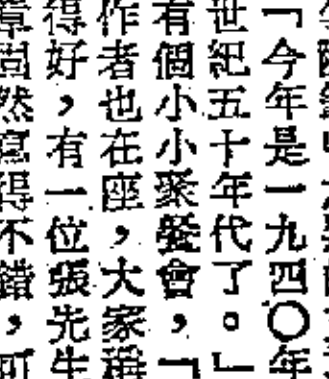 「今年是一九四〇年
世紀五十年代了。」
有個小小聚餐會，「
作者也在座，大家稱
得好，有一位張先生
章固然寫得不錯，可